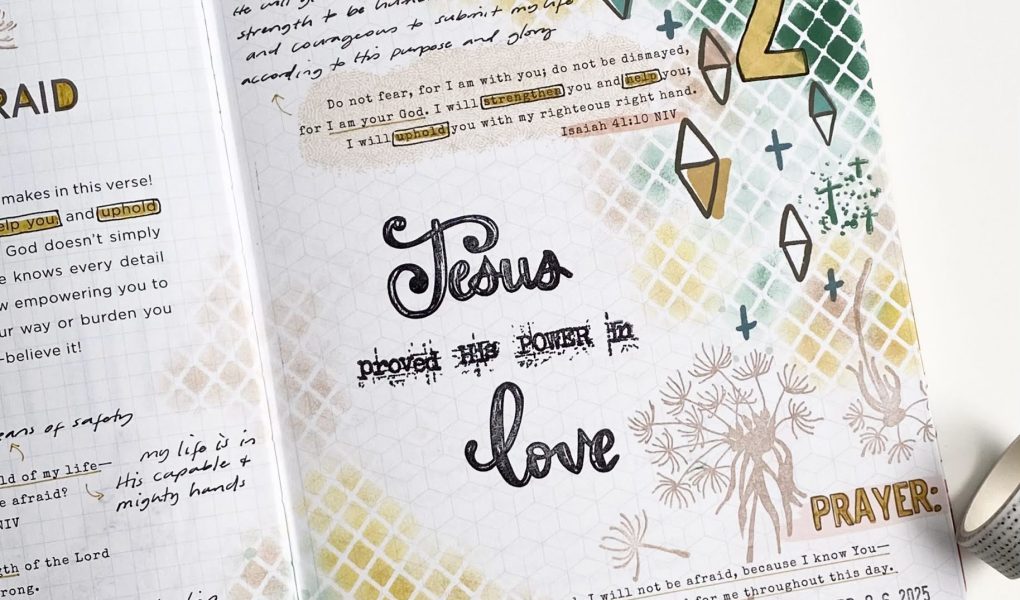 RAID
makes in this verse!
elp you, and uphold
God doesn't simply
e knows every detail
w empowering you to
ur way or burden you
—believe it!
eans of safety
ld of my life—
e afraid?
NIV
my life is in
His capable &
mighty hands
gth of the Lord
rong.
He will
strength to be
and courageous to submit my life
according to His purpose and glory
2
Do not fear, for I am with you; do not be dismayed,
for I am your God. I will strengthen you and help you;
I will uphold you with my righteous right hand.
Isaiah 41:10 NIV
Jesus
proved His POWER in
love
PRAYER:
I will not be afraid, because I know You—
for me throughout this day.
2 6 2025